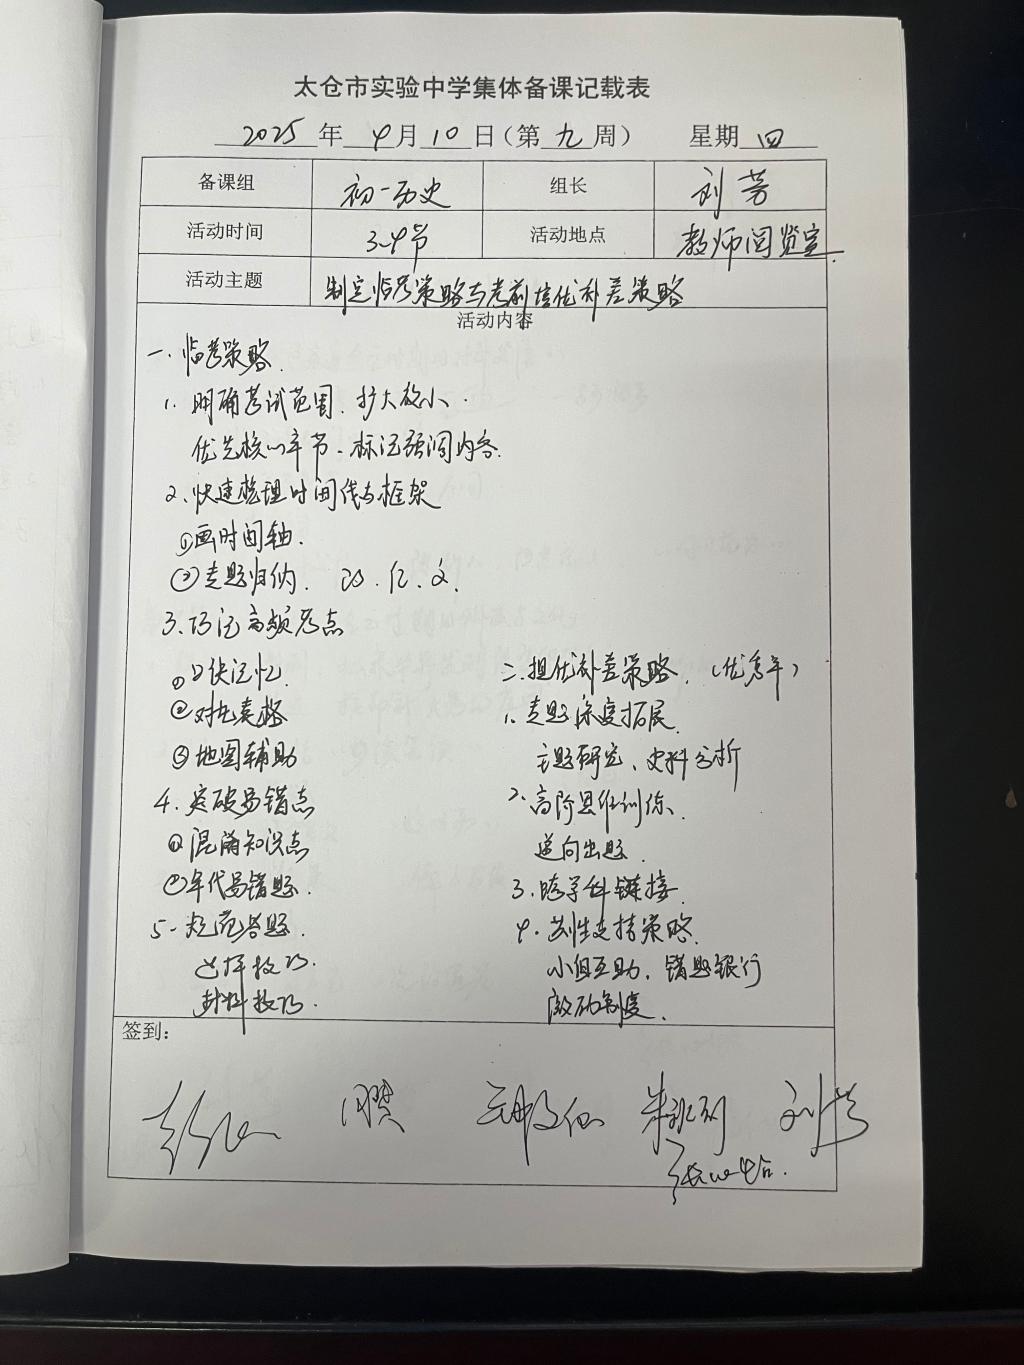 太仓市实验中学集体备课记载表
2025 年 4 月 10 日(第 九 周) 星期 四
备课组 初一历史 组长 刘芳
活动时间 3-4节 活动地点 教师阅览室.
活动主题 制定临考策略与考前培优补差策略
活动内容
一.临考策略.
1. 明确考试范围.扩大放小.
优先核心章节.标记强调内容.
2.快速梳理时间线与框架
①画时间轴.
②专题归纳.
3.巧记高频考点
①口诀记忆.
②对比表格
③地图辅助
4.突破易错点
①混淆知识点
②年代易错题.
5.规范答题.
选择技巧.
材料技巧.
二.培优补差策略.(优秀率)
1.专题深度拓展.
主题研究、史料分析
2.高阶思维训练.
逆向出题.
3.跨学科链接.
4.差生支持策略.
小组互助.错题银行
激励制度.
签到:
刘芳